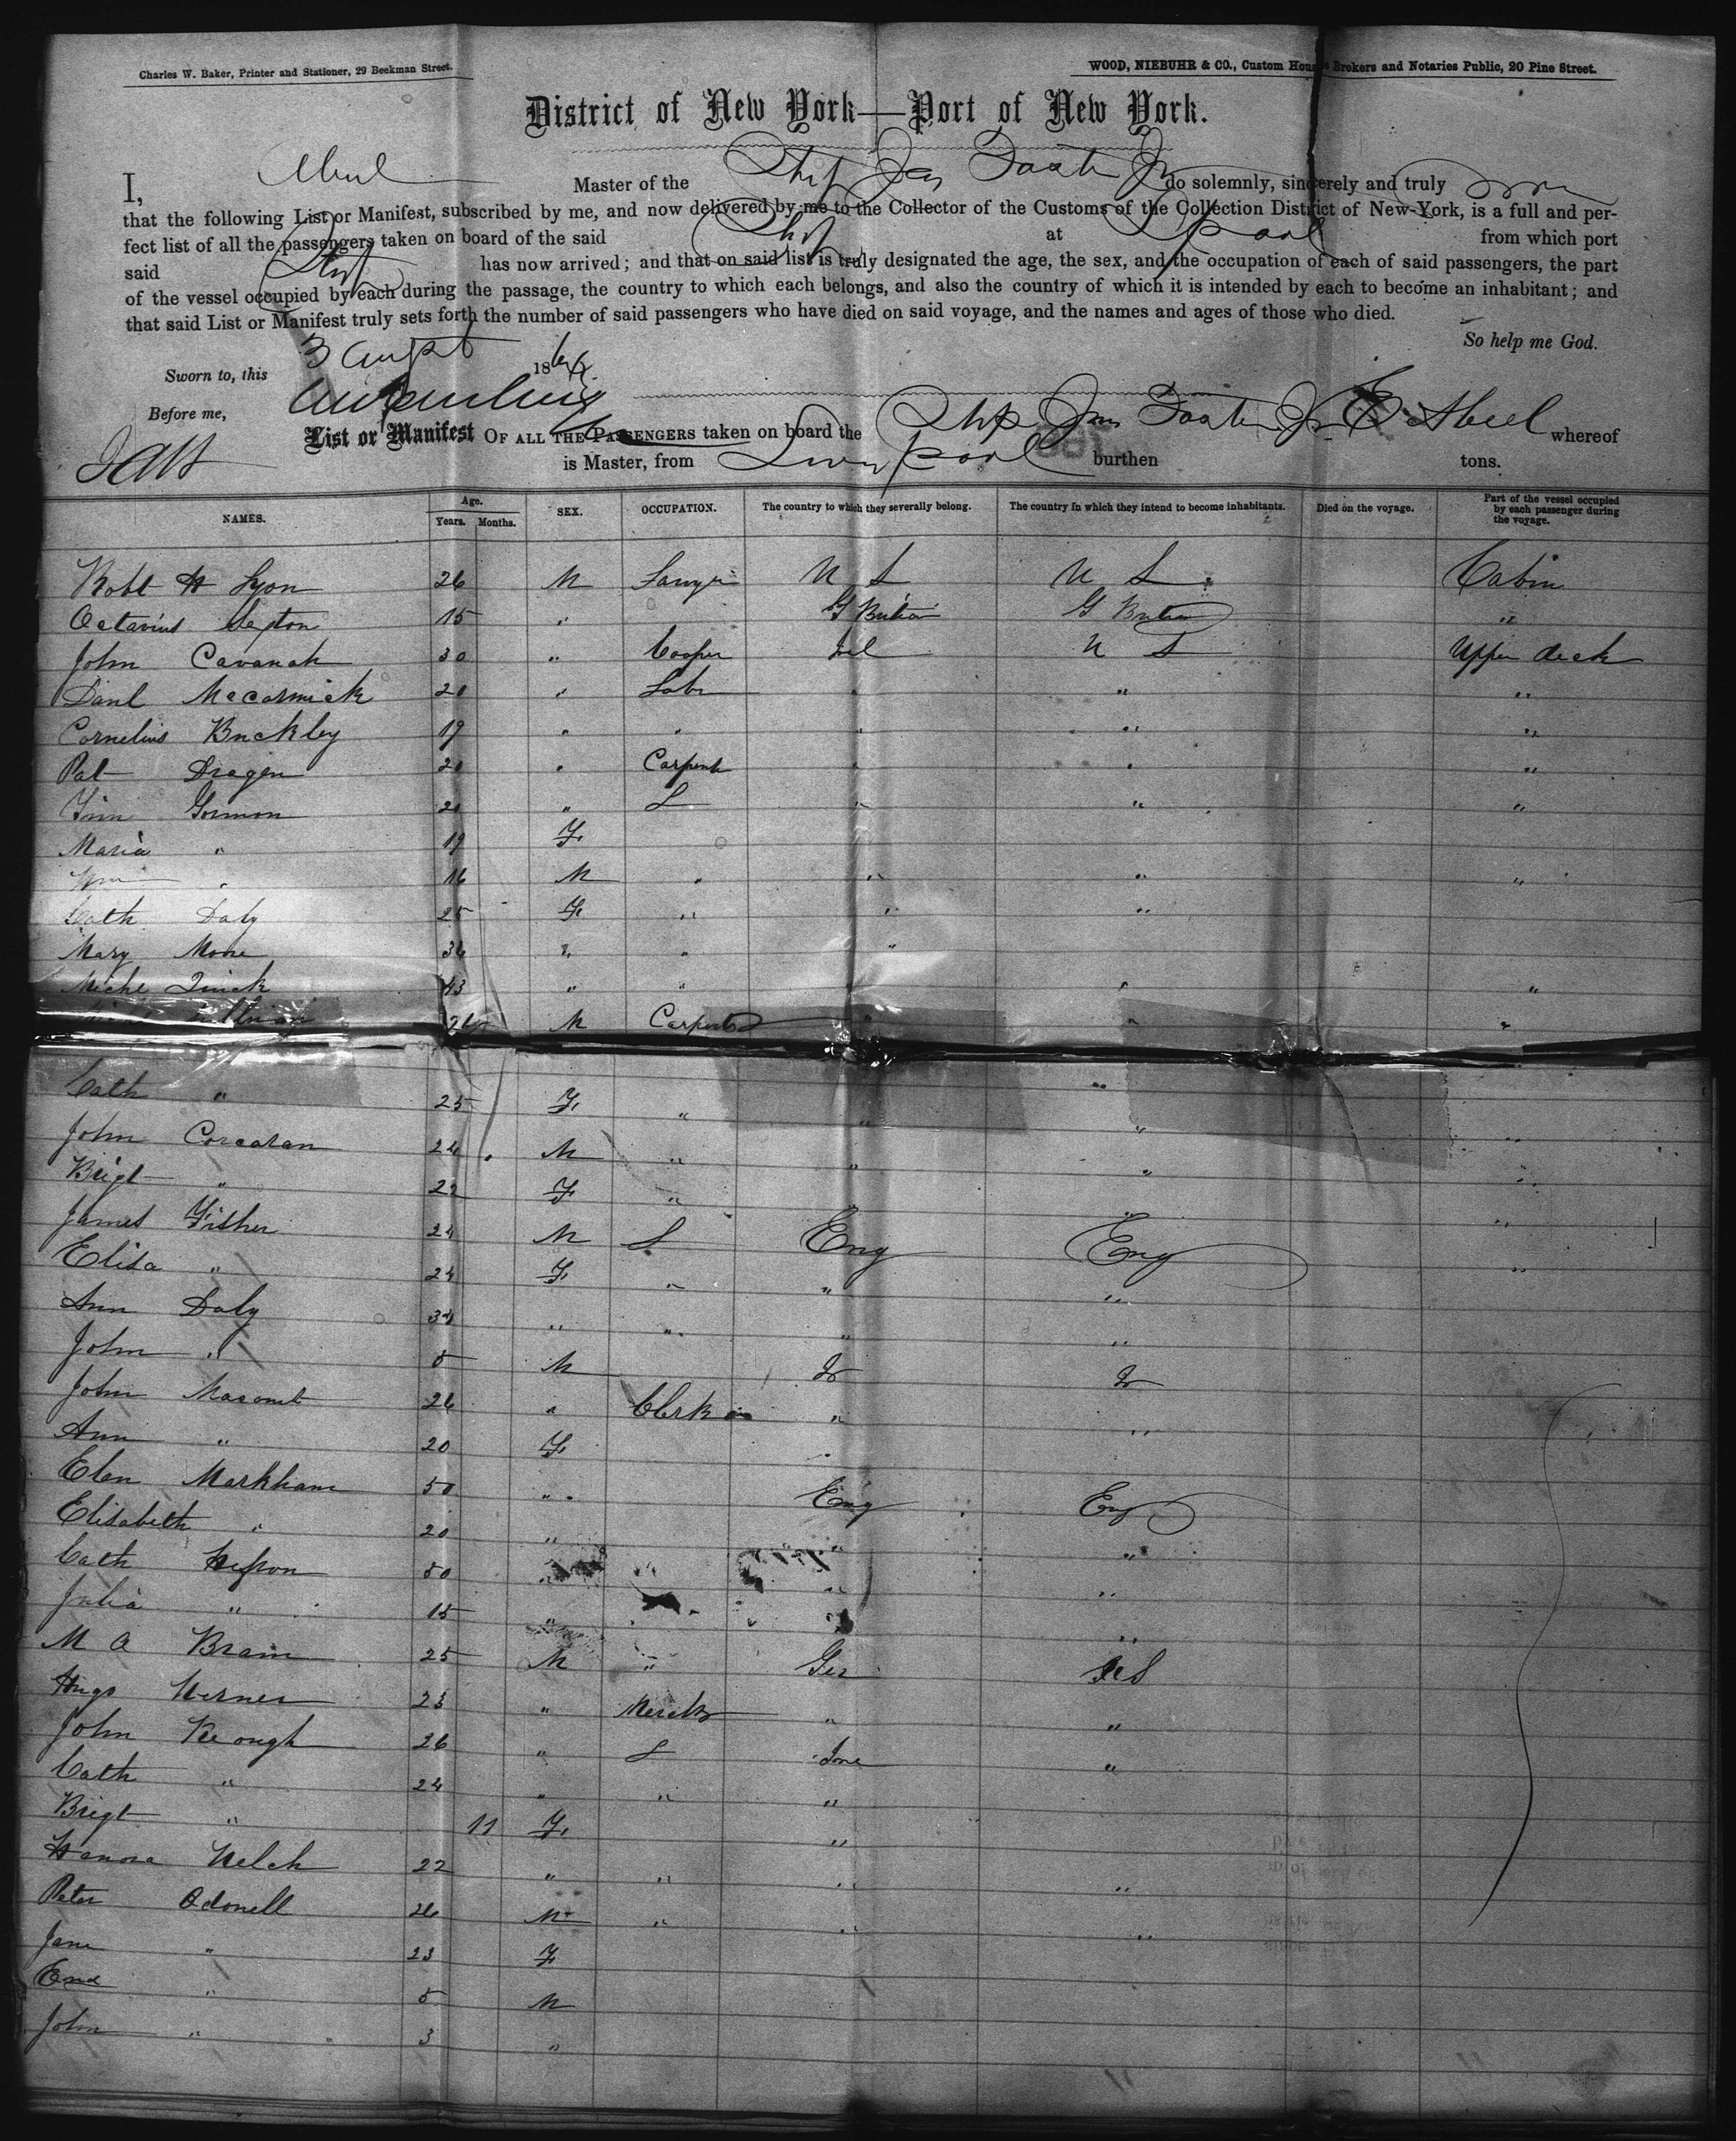 Charles W. Baker, Printer and Stationer, 29 Beekman Street.
WOOD, NIEBUHR & CO., Custom House Brokers and Notaries Public, 20 Pine Street.
District of New York—Port of New York.
I, Master of the Ship Jas Foster Jr do solemnly, sincerely and truly
that the following List or Manifest, subscribed by me, and now delivered by me to the Collector of the Customs of the Collection District of New-York, is a full and per-
fect list of all the passengers taken on board of the said Ship at Lpool from which port
said Ship has now arrived; and that on said list is truly designated the age, the sex, and the occupation of each of said passengers, the part
of the vessel occupied by each during the passage, the country to which each belongs, and also the country of which it is intended by each to become an inhabitant; and
that said List or Manifest truly sets forth the number of said passengers who have died on said voyage, and the names and ages of those who died.
So help me God.
Sworn to, this 3 August 18
Before me,
List or Manifest OF ALL THE PASSENGERS taken on board the Ship Jas Foster Jr whereof
is Master, from Liverpool burthen tons.
NAMES. Age. Years. Months. SEX. OCCUPATION. The country to which they severally belong. The country in which they intend to become inhabitants. Died on the voyage. Part of the vessel occupied by each passenger during the voyage.
Robt H Lyon 26 M U S U S Cabin
Octavius Sexton 15 " G Britain G Britain "
John Cavanah 30 " Cooper Irel U S Upper deck
Danl McCormick 20 " Labr " " "
Cornelius Buckley 19 " " " " "
Pat Dregen 20 " Carpent " " "
Tim Gorman 20 " L " " "
Maria " 19 F
Wm " 16 M " " " "
Cath Daly 25 F " " "
Mary Mone 36 " " "
Michl Quick 43 " " " "
26 M Carpenter " " "
Cath " 25 F " " "
John Corcoran 24 M " " " "
Brigt " 22 F " " " "
James Fisher 24 M L Eng Eng "
Elisa " 24 F " " " "
Ann Daly 34 " " " "
John " 5 M Ir Ir
John 26 " Clerk " "
Ann " 20 F "
Elen Markham 50 " Eng Eng
Elisabeth " 20 " " "
Cath 50 " " "
Julia " 15 " " "
M A Bram 25 M " Ger U S
Hugo Werner 23 " Merch " "
John Keough 26 " L Ire "
Cath " 24 " " "
Brigt " 11 F "
Hanora Welch 22 " " " "
Peter Odonell 26 M " " "
Jane " 23 F
" 5 M
John " 3 "